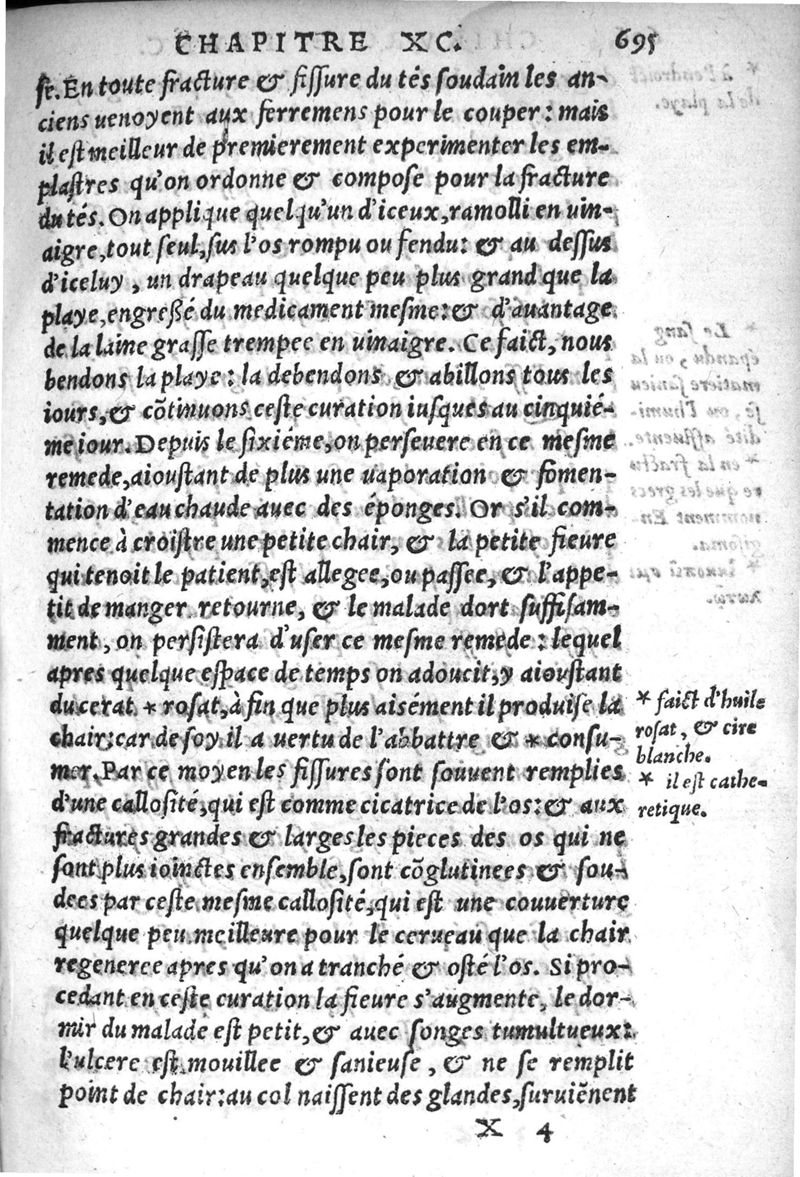 CHAPITRE XC. 695
se. En toute fracture & fissure du tés soudain les an-
ciens uenoyent aux ferremens pour le couper: mais
il est meilleur de premierement experimenter les em-
plastres qu'on ordonne & compose pour la fracture
du tés. On applique quelqu'un d'iceux, ramolli en uin-
aigre, tout seul, sus l'os rompu ou fendu: & au dessus
d'iceluy, un drapeau quelque peu plus grand que la
playe, engreßé du medicament mesme: & d'auantage
de la laine grasse trempee en uinaigre. Ce faict, nous
bendons la playe: la debendons & abillons tous les
iours, & cõtinuons ceste curation iusques au cinquié-
me iour. Depuis le sixiéme, on perseuere en ce mesme
remede, aioustant de plus une uaporation & fomen-
tation d'eau chaude auec des éponges. Or s'il com-
mence à croistre une petite chair, & la petite fieure
qui tenoit le patient, est allegee, ou passee, & l'appe-
tit de manger retourne, & le malade dort suffisam-
ment, on persistera d'user ce mesme remede: lequel
apres quelque espace de temps on adoucit, y aioustant
du cerat * rosat, à fin que plus aisément il produise la
chair: car de soy il a uertu de l'abbattre & * consu-
mer. Par ce moyen les fissures sont souuent remplies
d'une callosité, qui est comme cicatrice de l'os: & aux
fractures grandes & larges les pieces des os qui ne
sont plus ioinctes ensemble, sont cõglutinees & sou-
dees par ceste mesme callosité, qui est une couuerture
quelque peu meilleure pour le cerueau que la chair
regeneree apres qu'on a tranché & osté l'os. Si pro-
cedant en ceste curation la fieure s'augmente, le dor-
mir du malade est petit, & auec songes tumultueux:
l'ulcere est mouillee & sanieuse, & ne se remplit
point de chair: au col naissent des glandes, suruiẽnent
X 4
* faict d'huile
rosat, & cire
blanche.
* il est cathe-
retique.